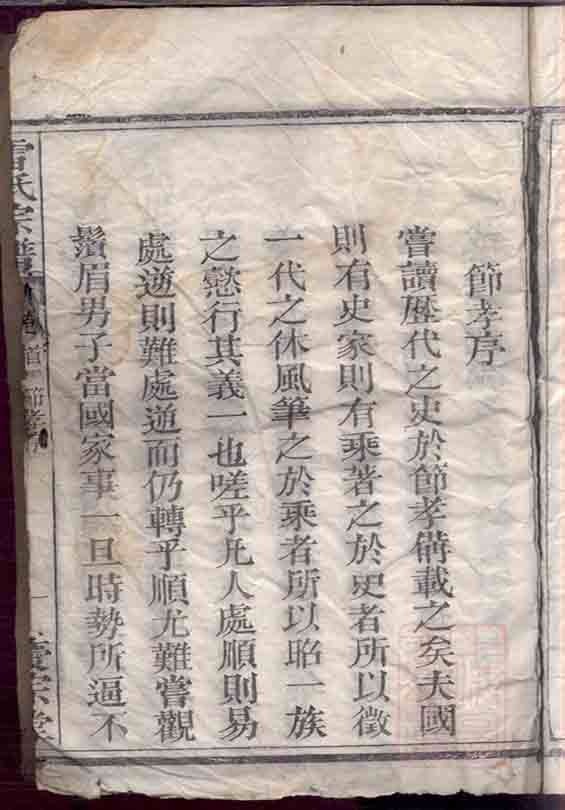 節孝序
嘗讀歷代之史於節孝備載之矣夫國
則有史家則有乘著之於史者所以徵
一代之休風筆之於乘者所以昭一族
之懿行其義一也嗟乎凡人處順則易
處逆則難處逆而仍轉乎順尤難嘗觀
鬚眉男子當國家事一旦時勢所逼不
氏宗譜 首 節孝序 一 宗堂